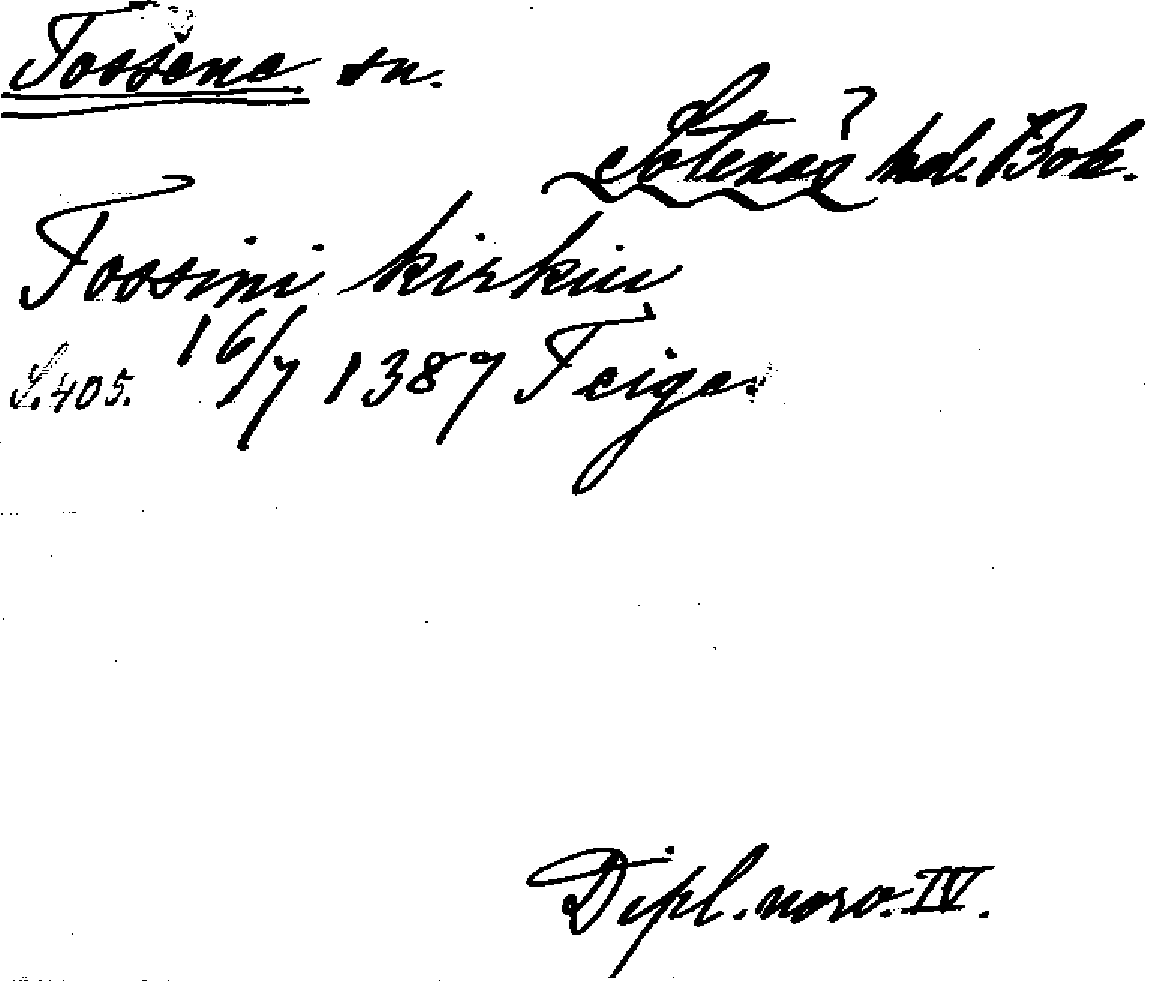 Tossene sn.
Sotenäs hd. Boh.
Tossini kirkiu
S. 405. 16/7 1387 Teige.
Dipl. norv. IV.